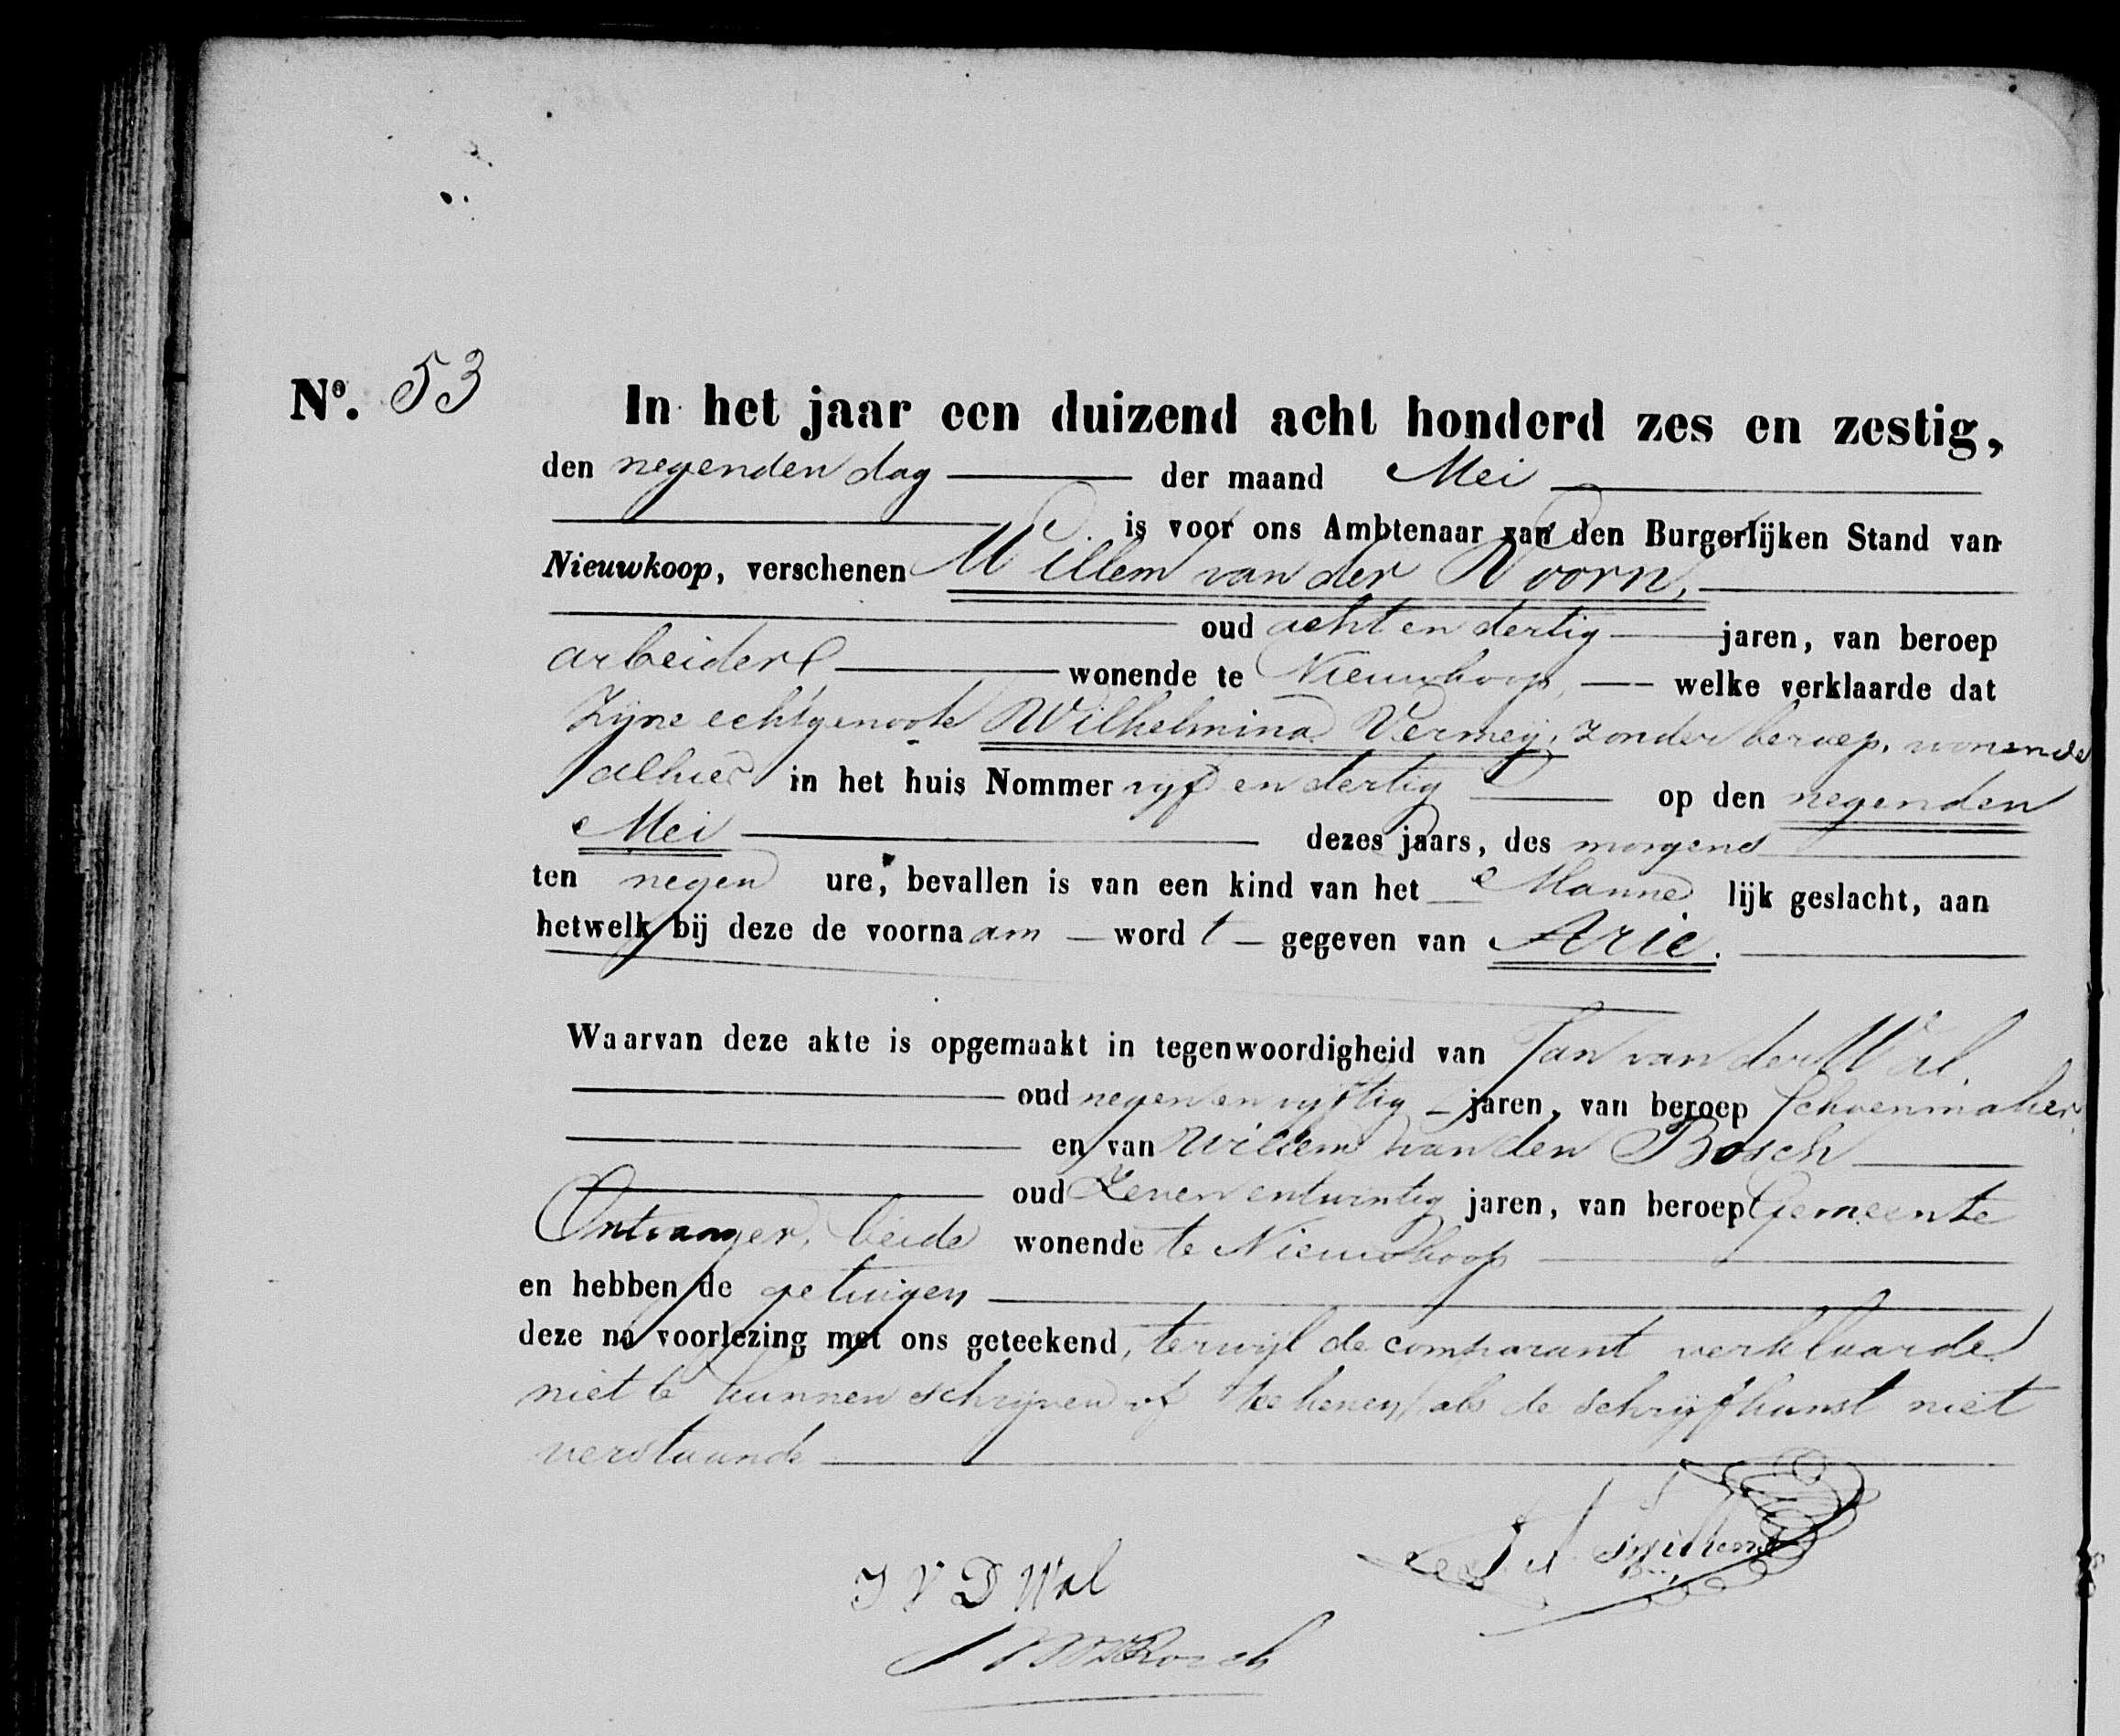 No. 53
In het jaar een duizend acht honderd zes en zestig,
den negenden dag der maand Mei
is voor ons Ambtenaar van den Burgerlijken Stand van
Nieuwkoop, verschenen Willem van der Voorn,
oud acht en dertig jaren, van beroep
arbeider wonende te Nieuwkoop, welke verklaarde dat
Zijne echtgenoote Wilhelmina Vermeij, zonder beroep, wonende
alhier in het huis Nommer vijf en dertig op den negenden
Mei dezes jaars, des morgens
ten negen ure, bevallen is van een kind van het Manne lijk geslacht, aan
hetwelk bij deze de voorna am word t gegeven van Arie.
Waarvan deze akte is opgemaakt in tegenwoordigheid van Jan van der Wal,
oud negen en vijftig jaren, van beroep Schoenmaker,
en van Willem van den Bosch
oud Zeven en twintig jaren, van beroep Gemeente
Ontvanger, beide wonende te Nieuwkoop
en hebben de getuigen
deze na voorlezing met ons geteekend, terwijl de comparant verklaarde
niet te kunnen schrijven of teekenen als de schrijfkunst niet
verstaande
J V D Wal
Bosch